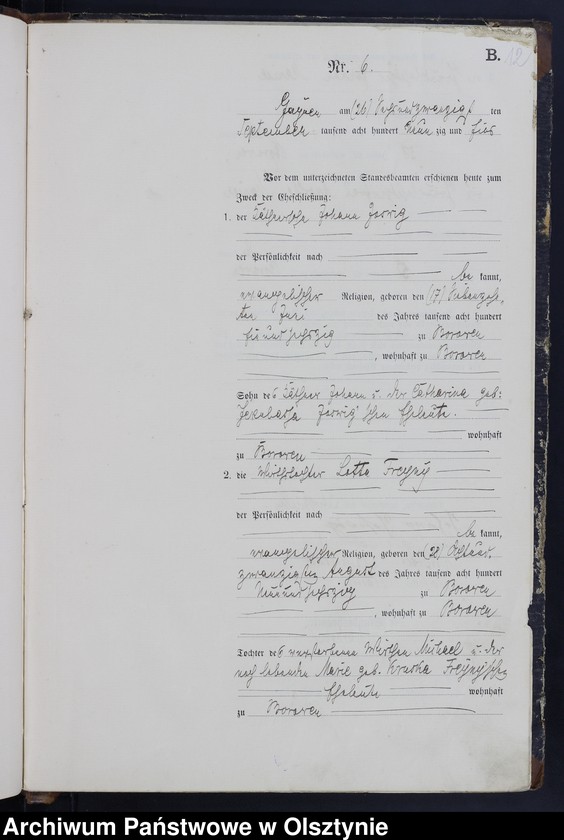 B. 12
Nr. 6.
am (26) Sechsundzwanzigst ten
September tausend acht hundert Neun zig und
Vor dem unterzeichneten Standesbeamten erschienen heute zum
Zweck der Eheschließung:
1. der Johann
der Persönlichkeit nach
be kannt,
evangelischer Religion, geboren den (17) Siebenzehn
ten Juni des Jahres tausend acht hundert
sechszig zu Bororen
, wohnhaft zu Bororen
Sohn des Käthner Johann u. der Catharina geb:
Eheleute.
wohnhaft
zu Bororen
2. die Lotte
der Persönlichkeit nach
be kannt,
evangelischer Religion, geboren den (28) Achtund
zwanzigsten August des Jahres tausend acht hundert
Neunundsechszig zu Bororen
, wohnhaft zu Bororen
Tochter des verstorbenen Wirthen Michael u. der
noch lebenden Marie geb.
Eheleute wohnhaft
zu Bororen
Archiwum Państwowe w Olsztynie